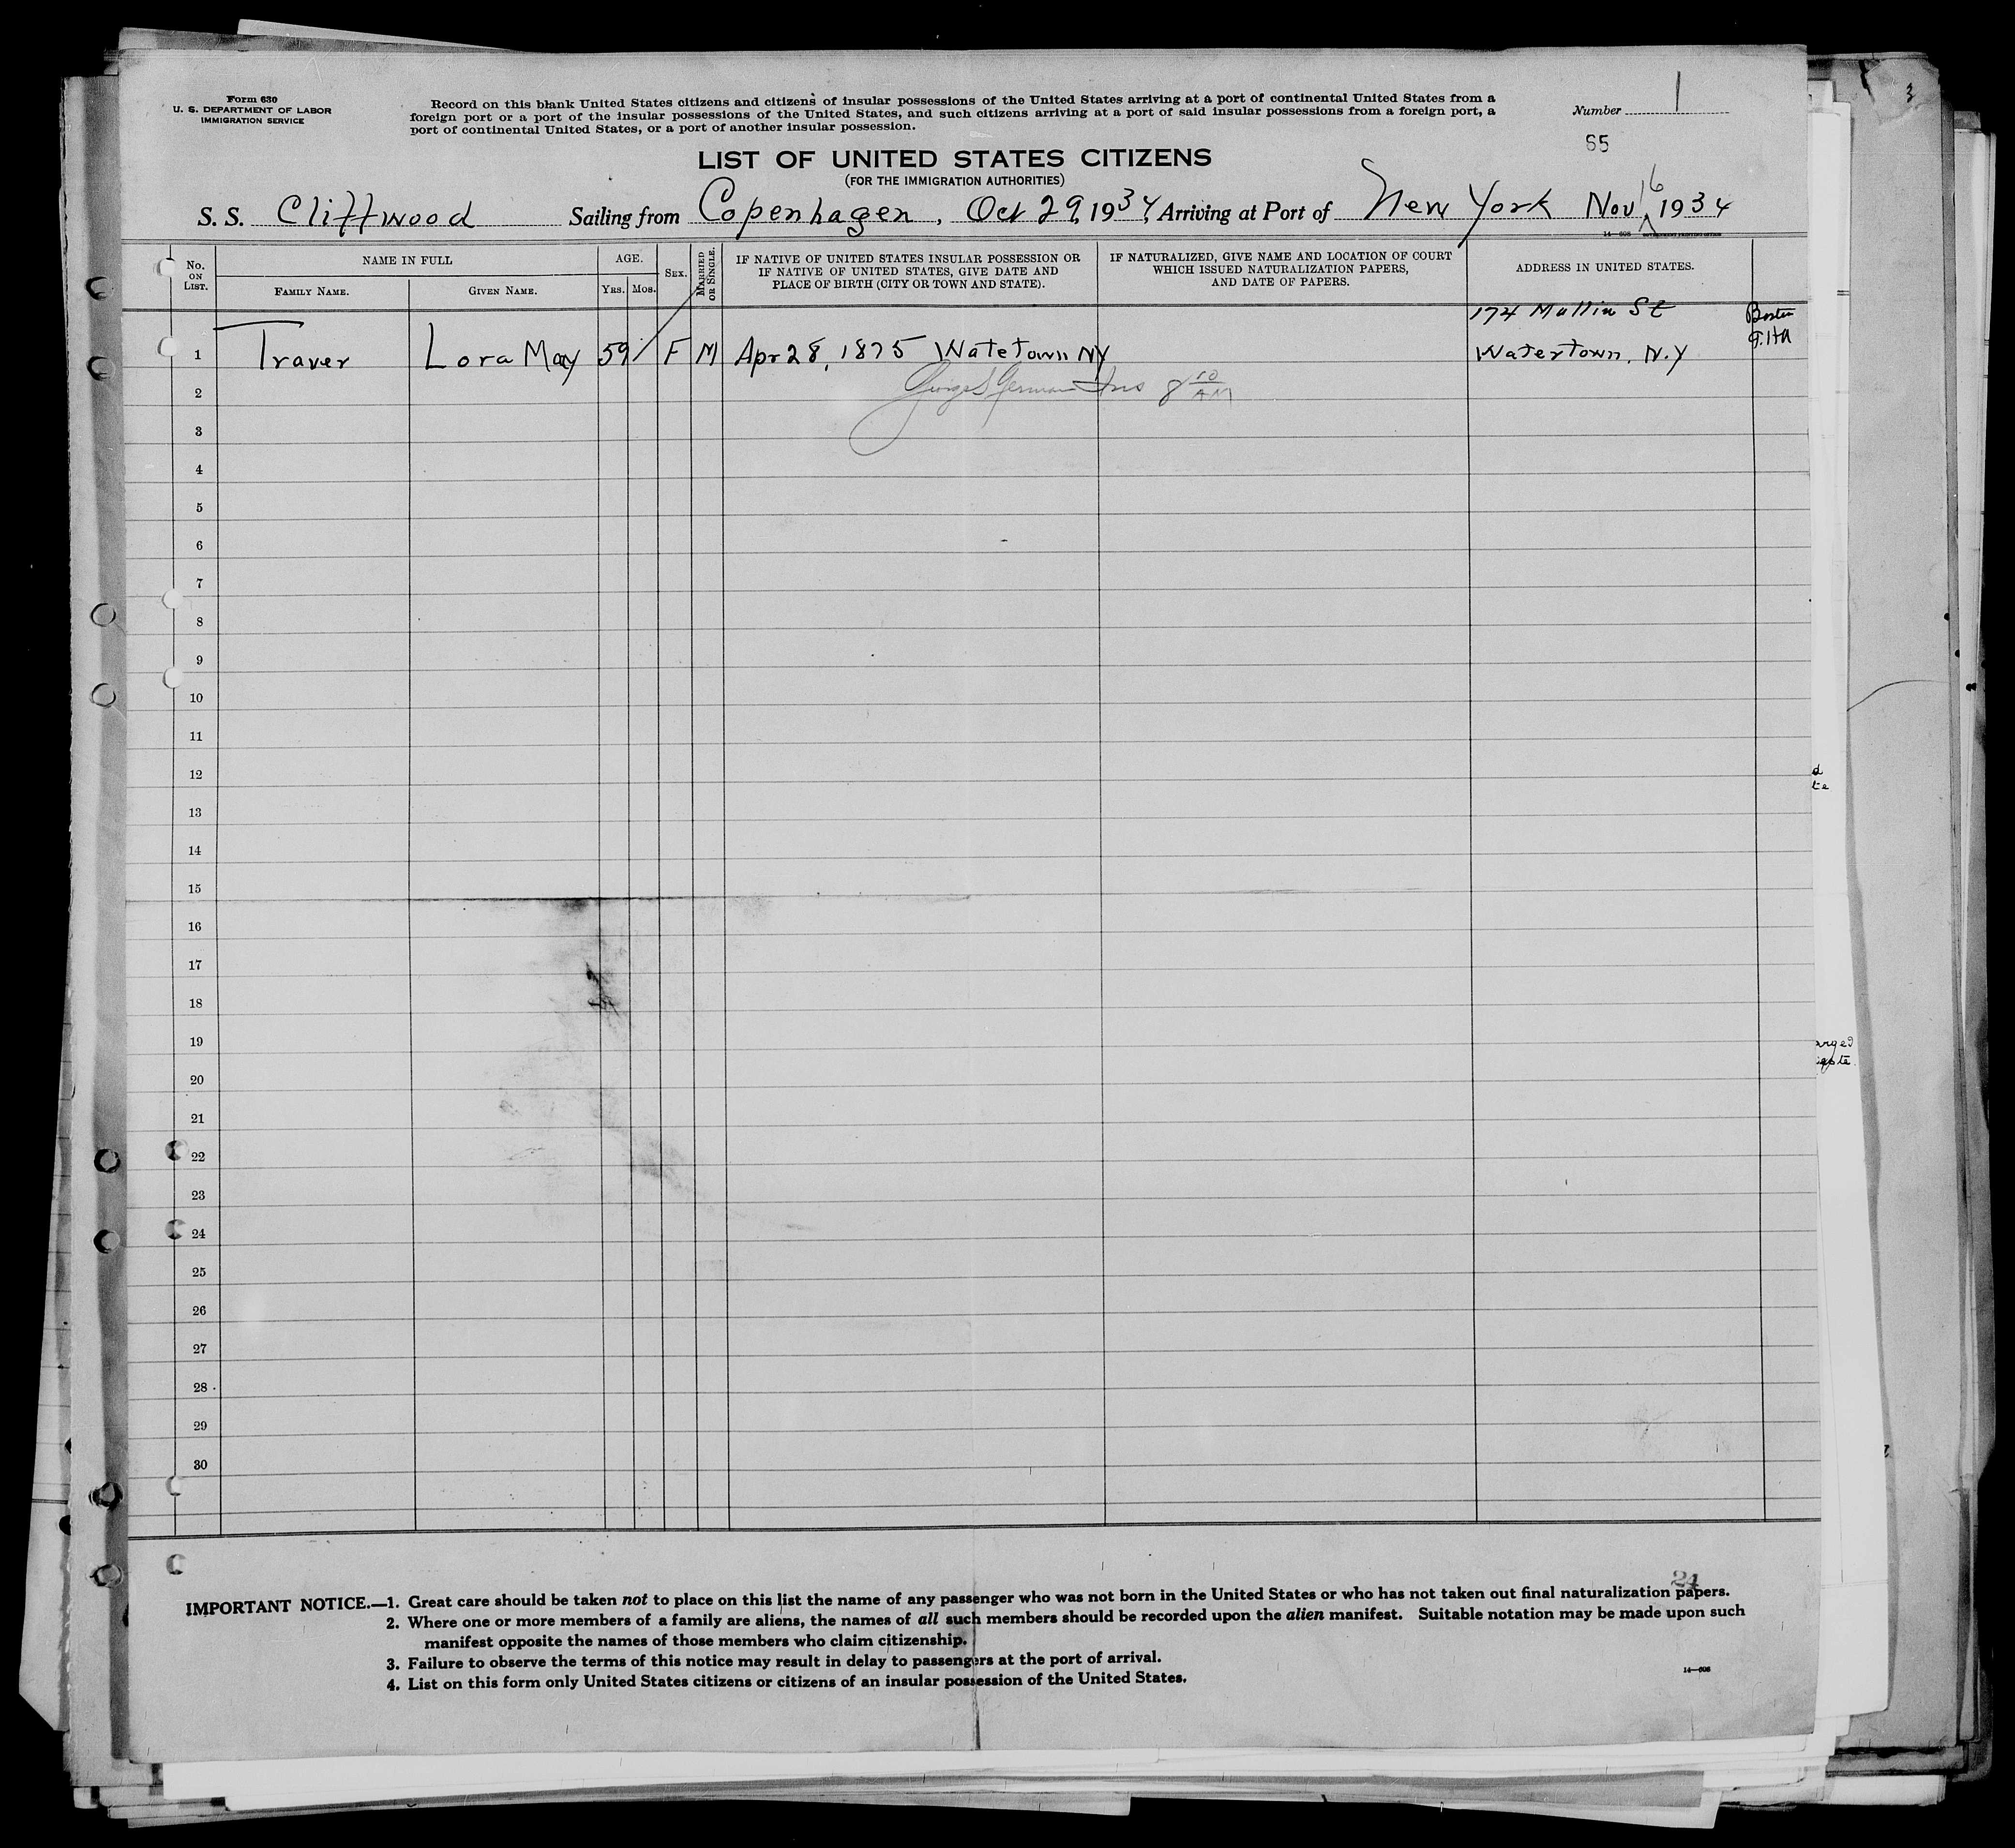 Form 630
U. S. DEPARTMENT OF LABOR
IMMIGRATION SERVICE
Record on this blank United States citizens and citizens of insular possessions of the United States arriving at a port of continental United States from a
foreign port or a port of the insular possessions of the United States, and such citizens arriving at a port of said insular possessions from a foreign port, a
port of continental United States, or a port of another insular possession.
Number 1
65
3
LIST OF UNITED STATES CITIZENS
(FOR THE IMMIGRATION AUTHORITIES)
S. S. Cliffwood Sailing from Copenhagen, Oct 29, 1934, Arriving at Port of New York Nov 16 1934
14—608
No. ON LIST.
NAME IN FULL
FAMILY NAME.
GIVEN NAME.
AGE.
YRS. MOS.
SEX.
MARRIED OR SINGLE.
IF NATIVE OF UNITED STATES INSULAR POSSESSION OR
IF NATIVE OF UNITED STATES, GIVE DATE AND
PLACE OF BIRTH (CITY OR TOWN AND STATE).
IF NATURALIZED, GIVE NAME AND LOCATION OF COURT
WHICH ISSUED NATURALIZATION PAPERS,
AND DATE OF PAPERS.
ADDRESS IN UNITED STATES.
174 Mullin St
Boston
1 Traver Lora May 59 F M Apr 28, 1875 Watetown NY Watertown, N.Y
2 Ins 8 10 AM
3
4
5
6
7
8
9
10
11
12
13
14
15
16
17
18
19
20
21
22
23
24
25
26
27
28
29
30
24
IMPORTANT NOTICE.—1. Great care should be taken not to place on this list the name of any passenger who was not born in the United States or who has not taken out final naturalization papers.
2. Where one or more members of a family are aliens, the names of all such members should be recorded upon the alien manifest. Suitable notation may be made upon such
manifest opposite the names of those members who claim citizenship.
3. Failure to observe the terms of this notice may result in delay to passengers at the port of arrival.
4. List on this form only United States citizens or citizens of an insular possession of the United States.
14—608